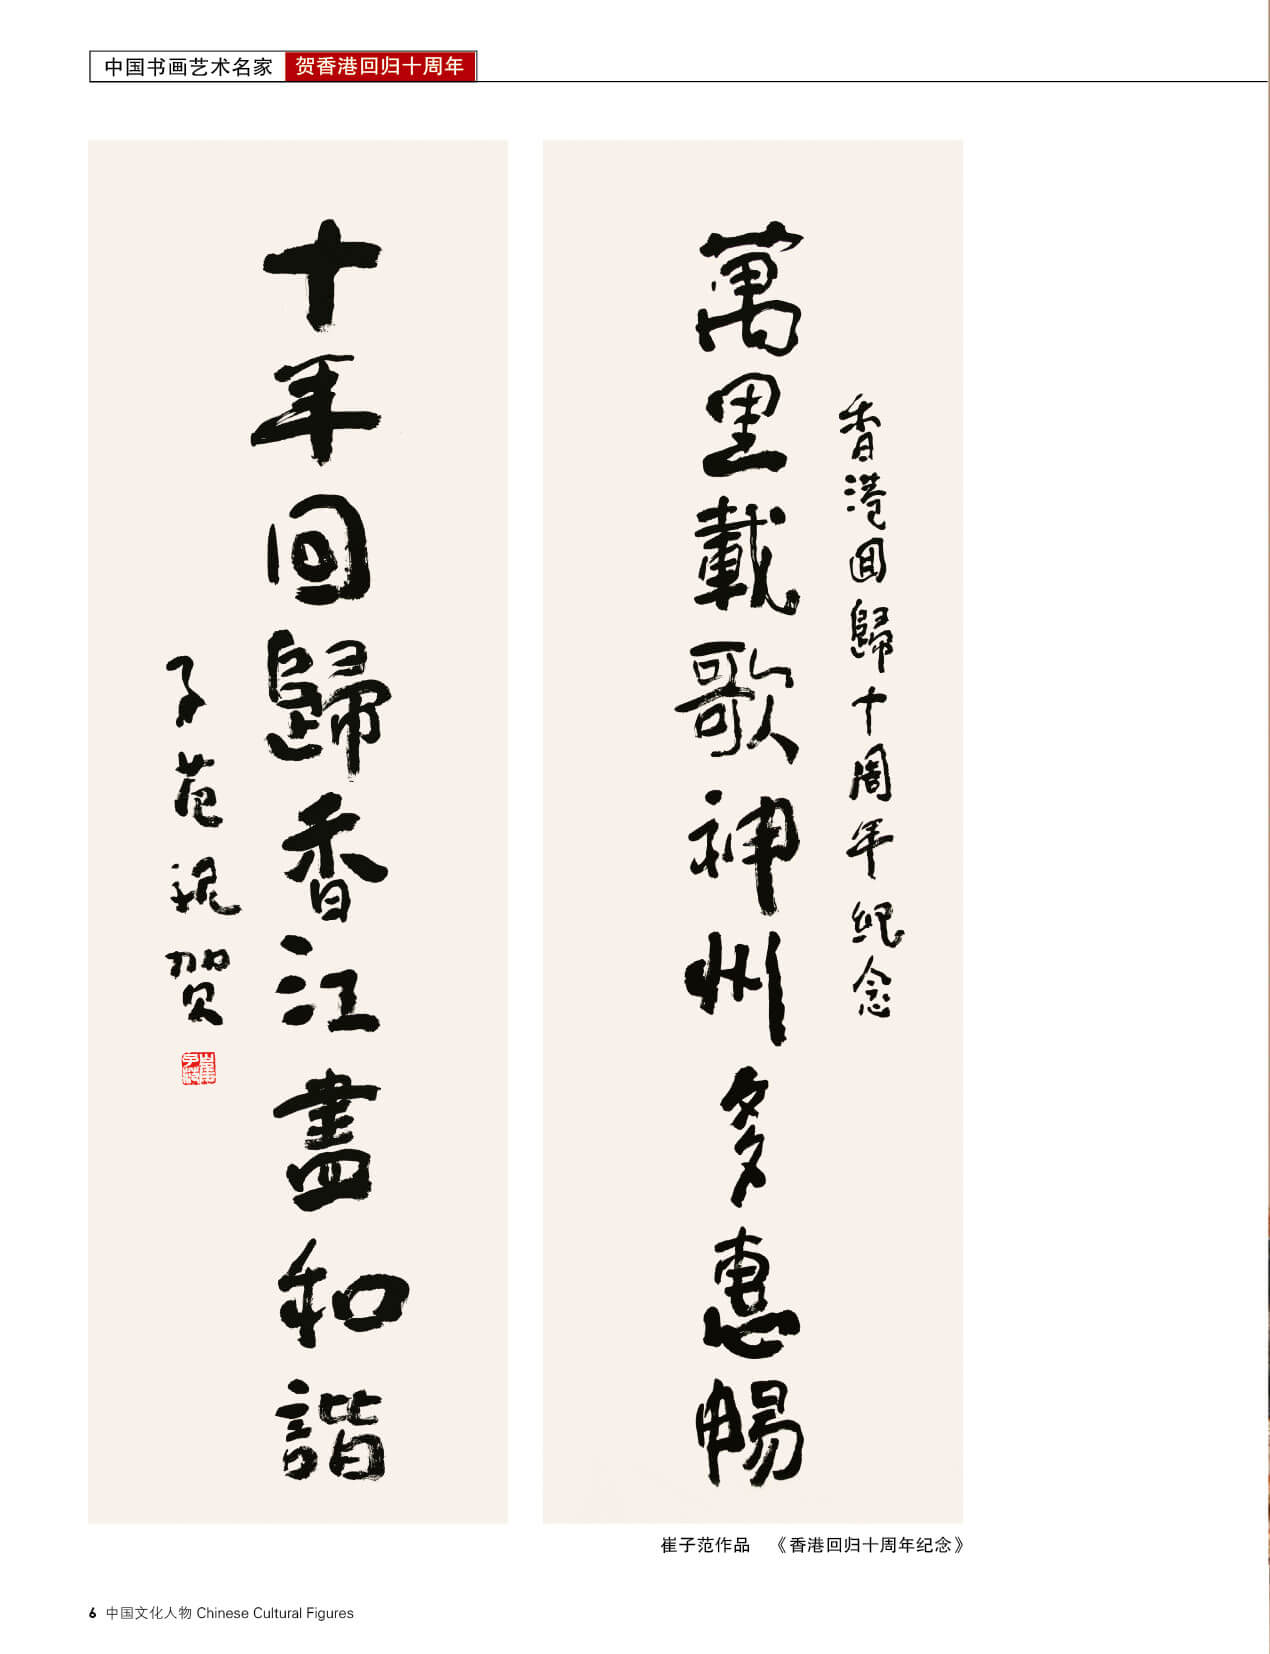 中国书画艺术名家 贺香港回归十周年
香港回歸十周年纪念
萬里載歌神州多惠暢
十年回歸香江盡和諧
子范祝贺
崔子范
崔子范作品 《香港回归十周年纪念》
6 中国文化人物 Chinese Cultural Figures